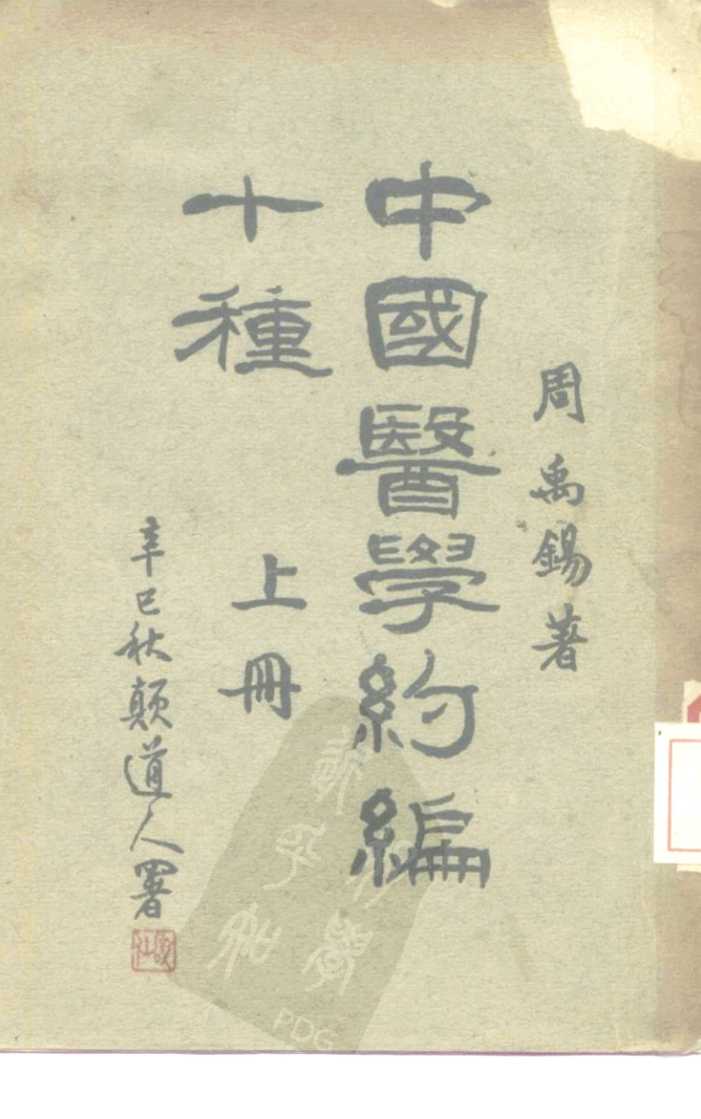 周禹錫著
中國醫學約編
十種
上冊
辛巳秋顛道人署
PDG